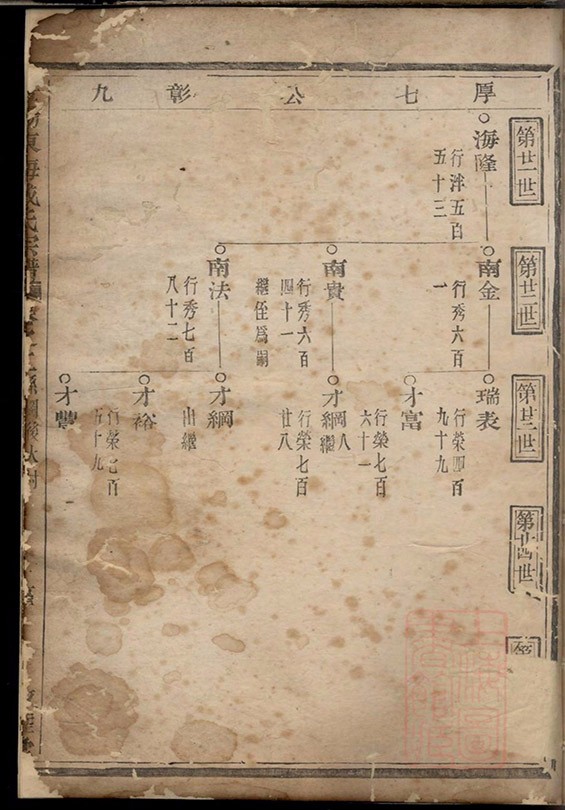 厚七公彰九
第廿一世
第廿二世
第廿三世
第廿四世
海隆
行泮五百
五十三
南金
行秀六百
一
瑞表
行榮四百
九十九
才富
行榮七百
六十一
南貴
行秀六百
四十一
繼侄爲嗣
才綱入繼
行榮七百
廿八
南法
行秀七百
八十二
才綱
出繼
才裕
行榮七百
五十九
才豐
東海
氏宗譜